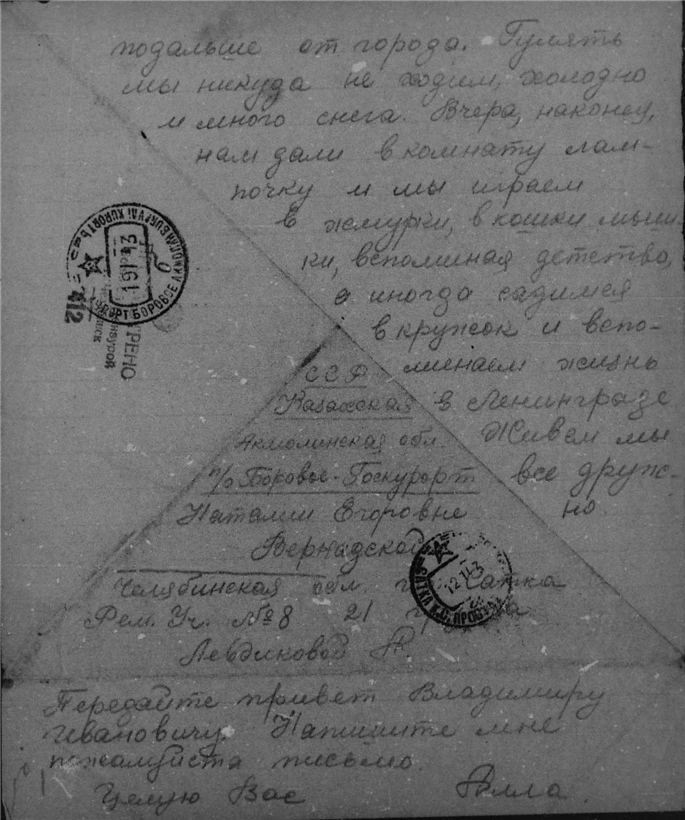 подальше от города. Гулять
мы никуда не ходим, холодно
и много снега. Вчера, наконец,
нам дали в комнату лам-
почку и мы играем
в жмурки, в кошки мыш
ки, вспоминая детство,
а иногда садимся
в кружок и вспо-
минаем жизнь
в Ленинграде
Живем мы
все друж-
но
ССР
Казахская
Акмолинская обл.
п/о Боровое-Госкурорт
Наталии Егоровне
Вернадской
Челябинская обл. Сатка
Рем. Уч. №8 21
Левдиковой А.
Передайте привет Владимиру
Ивановичу. Напишите мне
пожалуйста письмо.
Целую Вас Алла.
КУРОРТ БОРОВОЕ АКМОЛИН
19 1 43
412
12 1 43
САТКА